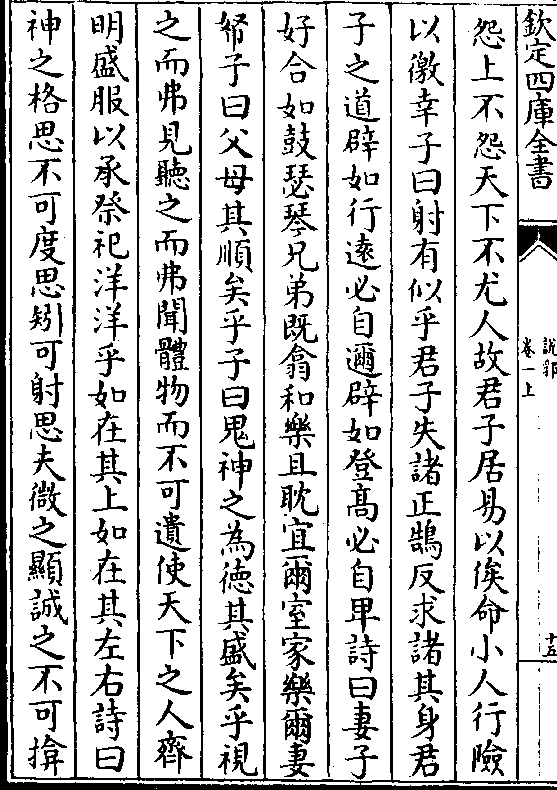 欽定四庫全書
說郛
卷一上
十五
怨上不怨天下不尤人故君子居易以俟命小人行險
以徼幸子曰射有似乎君子失諸正鵠反求諸其身君
子之道辟如行遠必自邇辟如登髙必自卑詩曰妻子
好合如鼓瑟琴兄弟既翕和樂且耽宜爾室家樂爾妻
帑子曰父母其順矣乎子曰鬼神之為徳其盛矣乎視
之而弗見聽之而弗聞體物而不可遺使天下之人齊
明盛服以承祭祀洋洋乎如在其上如在其左右詩曰
神之格思不可度思矧可射思夫微之顯誠之不可揜